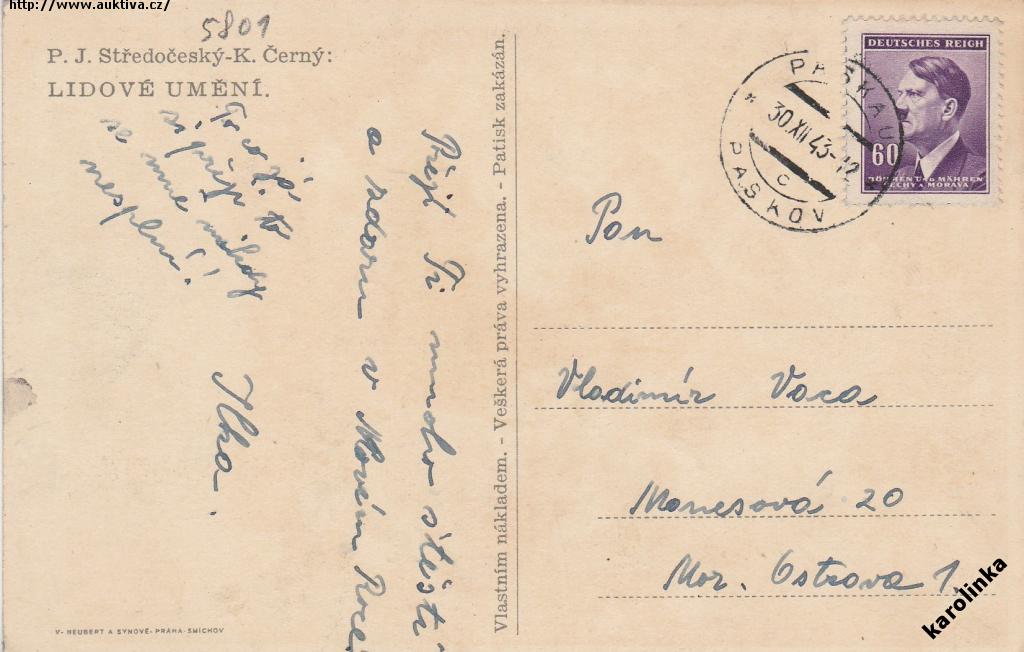 http://www.auktiva.cz/
5801
P. J. Středočeský-K. Černý:
LIDOVÉ UMĚNÍ.
To co já
si přeji to
se mne nikdy
nesplní!
Přeji Ti mnoho štěstí
a zdaru v Novém Roce.
Ilka.
V. NEUBERT A SYNOVÉ - PRAHA-SMÍCHOV
Vlastním nákladem. - Veškerá práva vyhrazena. - Patisk zakázán.
PASKAU
30.XII.43-12
C
PASKOV
DEUTSCHES REICH
60
BÖHMEN UND MÄHREN
ČECHY A MORAVA
Pan
Vladimír Vaca
Manesová 20
Mor. Ostrava 1.
karolinka